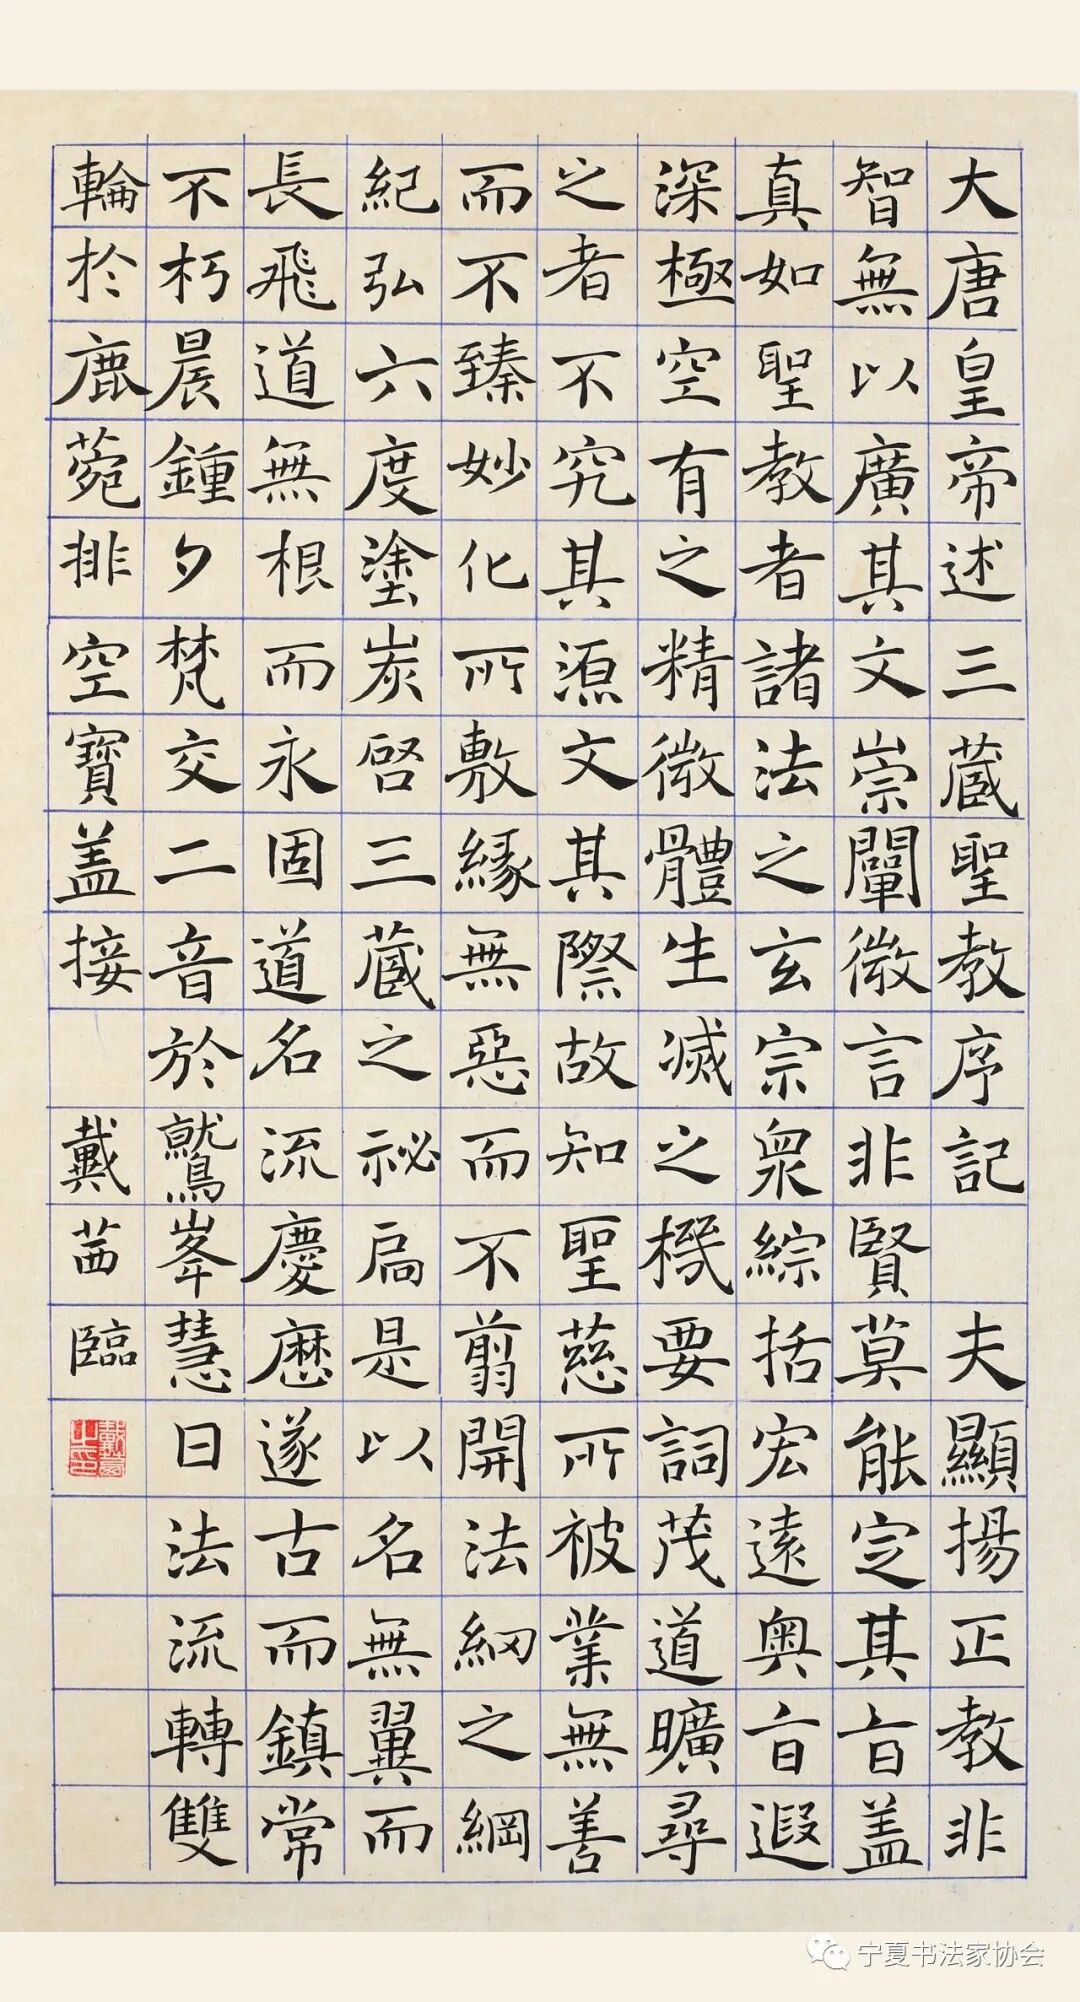 大唐皇帝述三蔵聖教序記 夫顯揚正教非
智無以廣其文崇闡微言非賢莫能定其旨盖
真如聖教者諸法之玄宗衆綜括宏遠奥旨遐
深極空有之精微體生滅之機要詞茂道曠尋
之者不究其源文其際故知聖慈所被業無善
而不臻妙化所敷緣無惡而不剪開法網之綱
紀弘六度塗炭啓三蔵之祕扃是以名無翼而
長飛道無根而永固道名流慶歷遂古而鎮常
不朽晨鍾夕梵交二音於鷲峯慧日法流轉雙
輪於鹿菀排空寶盖接 戴茜臨
宁夏书法家协会